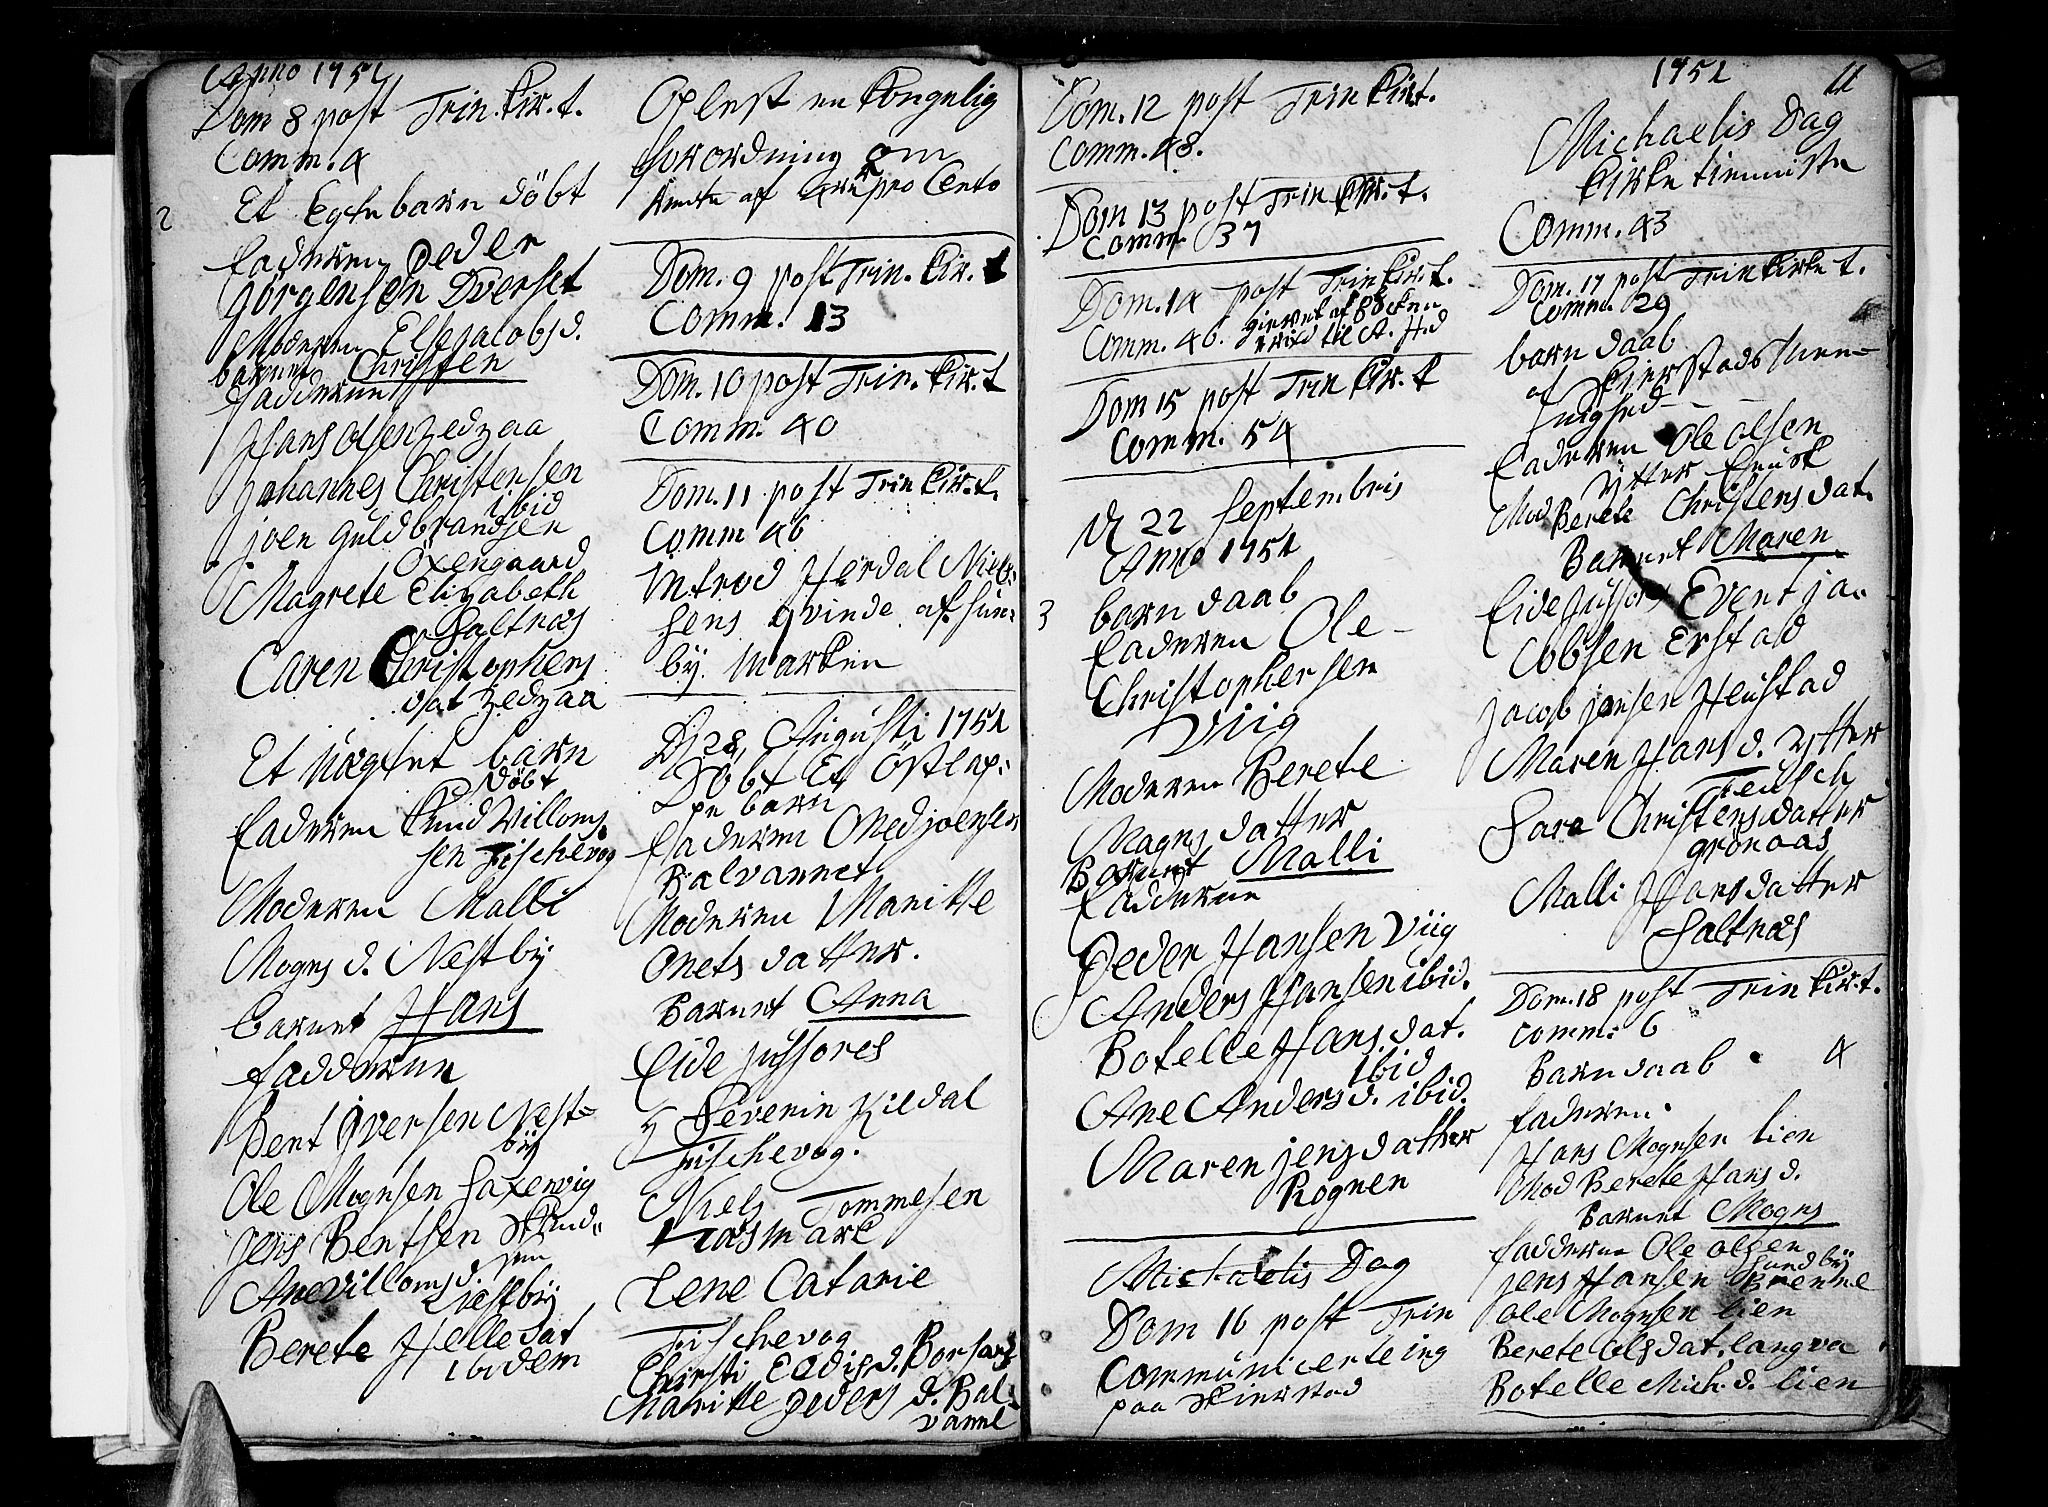 Anno 1751
Dom 8 post Trin. Kir. t.
Comm. 4
2
Et Egte barn döbt
faderen Peder
jörgensen Dverset
Moderen Else jacobs d.
barnet Christen
fadderne
Hans Olsen
Johannes Christensen
ibid
joen Guldbrandsen
Oxengaard
Magrete Elizabeth
Saltnæs
Caren Christophers
dat
Et barn
döbt
faderen Knud Villoms
sen Fischevog
Moderen Malli
Mogns d. Nestbÿ
barnet Hans
fadderne
Bent Iversen Nest=
bÿ
Ole Mognsen Saxevig
Jens Bentsen
Ane Villoms d.
Nestbÿ
Berete Helle dat
ibidem
Oplest en Kongelig
forordning om
Rente af pro Cento
Dom. 9 post Trin. Kir. t
Comm. 13
Dom. 10 post Trin. Kir. t
Comm. 40
Dom. 11 post Trin Kir. t.
Comm 46
Introd Herdal Niel-
sens qvinde af Sun-
bÿ. Marken
D 28, Augusti 1751
Döbt Et
barn
faderen joensen
Balvannet
Moderen Maritte
datter.
Barnet Anna
fide jussores
Severin Kildal
Fischevog.
Niels Tommesen
Lene Catarie
Fischevog
Chirsti d.
Maritte Peders d. Bal-
vanne
Dom. 12 post Trin Kir t.
Comm. 48.
Dom 13 post Trin Kir. t.
Comm 37
Dom. 14 post Trin Kir. t.
Comm. 46.
Dom 15 post Trin Kir. t
Comm. 54
D 22 Septembris
Anno 1751
3
barn daab
faderen Ole
Christophersen
Viig
Moderen Berete
Magns datter
Barnet Malli
fadderne
Peder Hansen Viig
Anders Hansen ibid.
Botelle Hans dat.
ibid
Ane Anders d. ibid.
Maren jens datter
Rognen
Michaelis Dag
Dom 16 post Trin
Communicerte ing
paa Skierstad
1751
11
Michaelis Dag
Kirke tienniste
Comm. 43
Dom. 17 post Trin Kirke t.
Comm. 29
barn daab
af Skierstads Men=
nighed
faderen Ole Olsen
Ytter
Mod Berete Christens dat.
Barnet Maren
fide jussores Event ja-
cobsen Erstad
jacob jensen
Maren Hans d. Ytter
Sara Christens datter
grönaas
Malli Hans datter
Saltnæs
Dom. 18 post Trin Kir. t.
comm. 6
Barn daab
4
faderen
Hans Mognsen lien
Mod Berete Hans d.
Barnet Mogns
fadderne Ole olsen
Sundbÿ
jens Hansen
ole Mognsen lien
Berete Ols dat. langva
Botelle Mich. d. lien